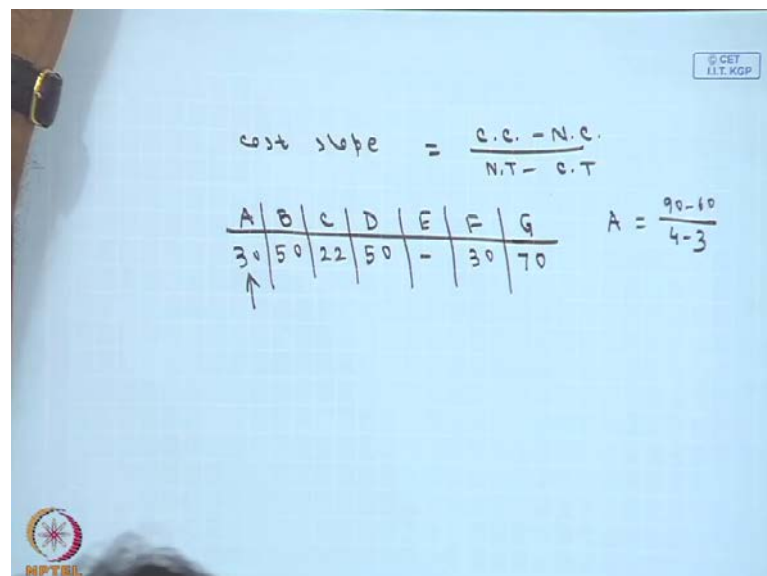 © CET
I.I.T. KGP
cost slope = C.C. - N.C. / N.T - C.T
A | B | C | D | E | F | G
30 | 50 | 22 | 50 | - | 30 | 70
↑
A = 90-60 / 4-3
NPTEL